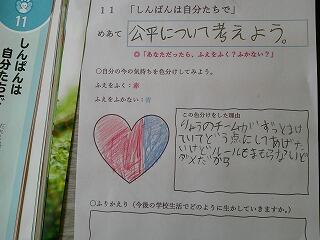 11
しんぱんは
自分たちで
11 「しんぱんは自分たちで」
めあて 公平について考えよう。
◎「あなただったら、ふえをふく？ふかない？」
○自分の今の気持ちを色分けしてみよう。
ふえをふく：赤
ふえをふかない：青
この色分けをした理由
りょうのチームがずっとまけ
ていてどう点にしてあげた
いけどルールをまもらないと
ダメだから
○ふりかえり（今後の学校生活でどのように生かしていきますか。）